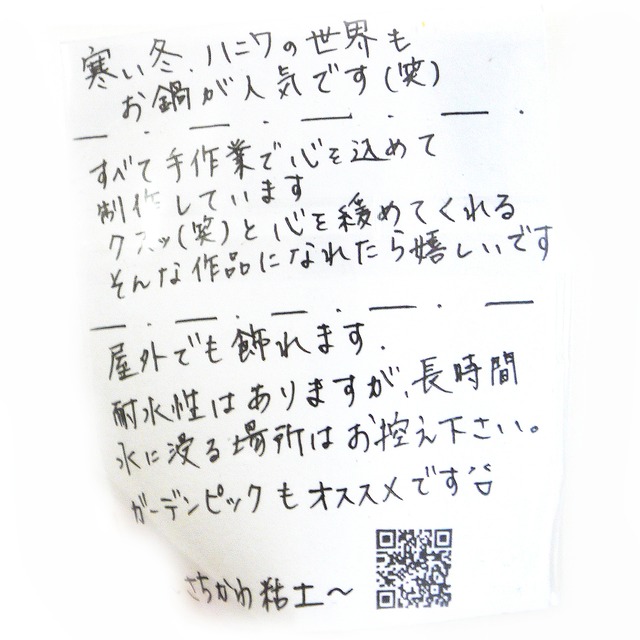 寒い冬、ハニワの世界も
お鍋が人気です(笑)
すべて手作業で心を込めて
制作しています
クスッ(笑)と心を緩めてくれる
そんな作品になれたら嬉しいです
屋外でも飾れます.
耐水性はありますが、長時間
水に浸る場所はお控え下さい。
ガーデンピックもオススメです
さちかわ粘土〜